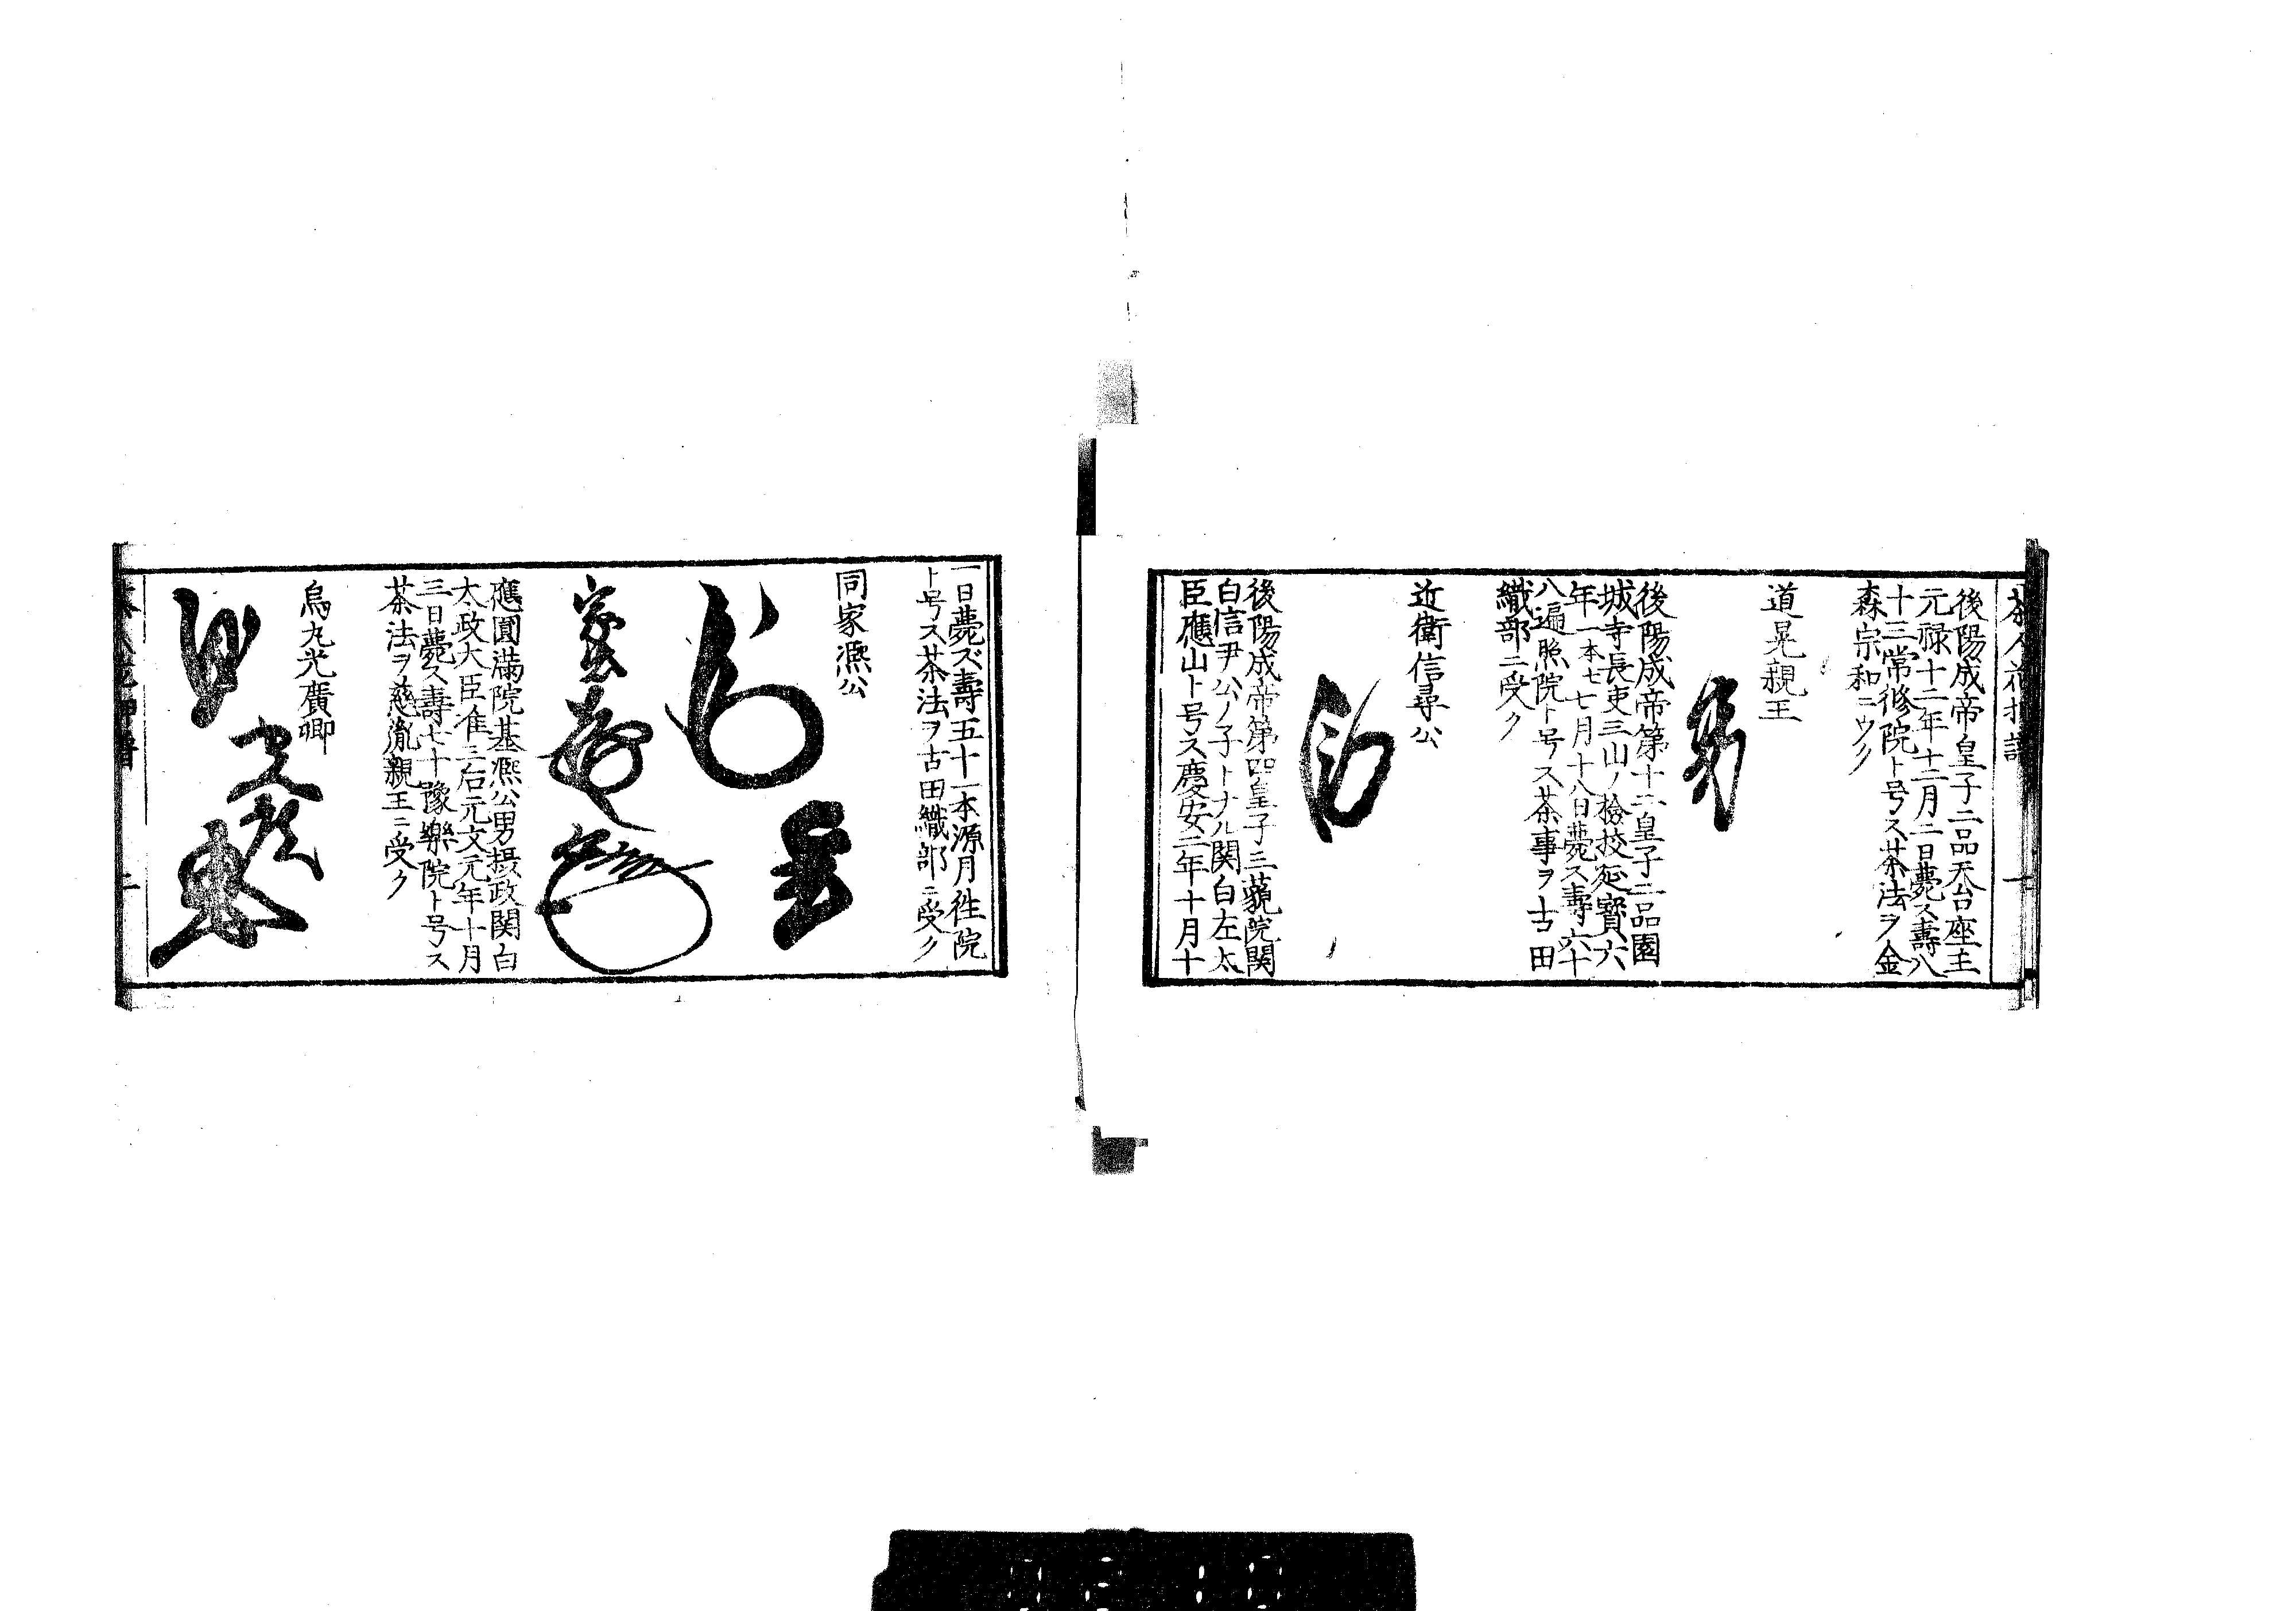 後陽成帝皇子二品天台座主
元禄十二年十二月二日薨ス壽八
十三常修院ト号ス茶法ヲ金
森宗和ニウク
道晃親王
後陽成帝第十二皇子二品園
城寺長吏三山ノ檢挍延寳六
年一本七七月十八日薨ス壽六十
八遍照院ト号ス茶事ヲ古田
織部ニ受ク
近衛信尋公
後陽成帝第四皇子三藐院関
白信尹公ノ子トナル関白左太
臣應山ト号ス慶安二年十月十
一日薨ズ壽五十一本源月徃院
ト号ス茶法ヲ古田織部ニ受ク
同家凞公
應圓滿院基凞公男摂政関白
大政大臣准三后元文元年十月
三日薨ス壽七十豫樂院ト号ス
茶法ヲ慈胤親王ニ受ク
烏丸光廣卿